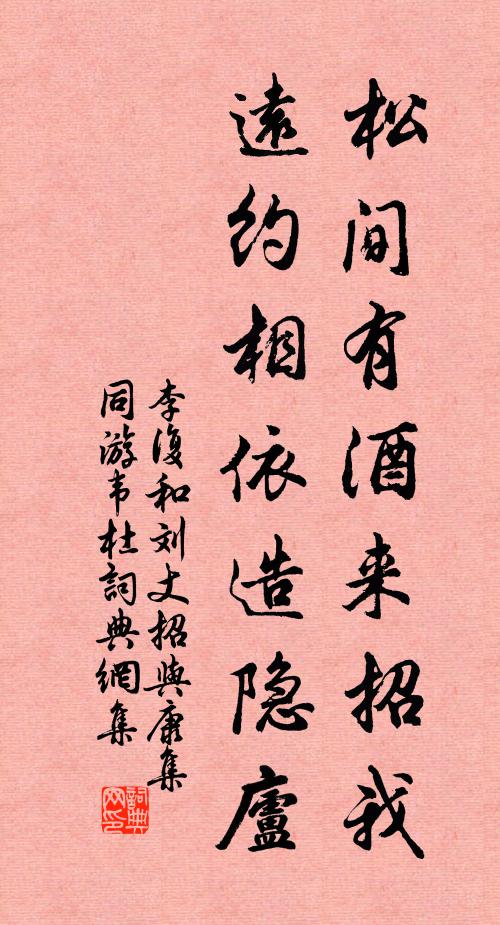 松间有酒来招我
遠约相依造隐廬
李復和刘丈招與康集
同游韦杜詞典網集
詞典
网印